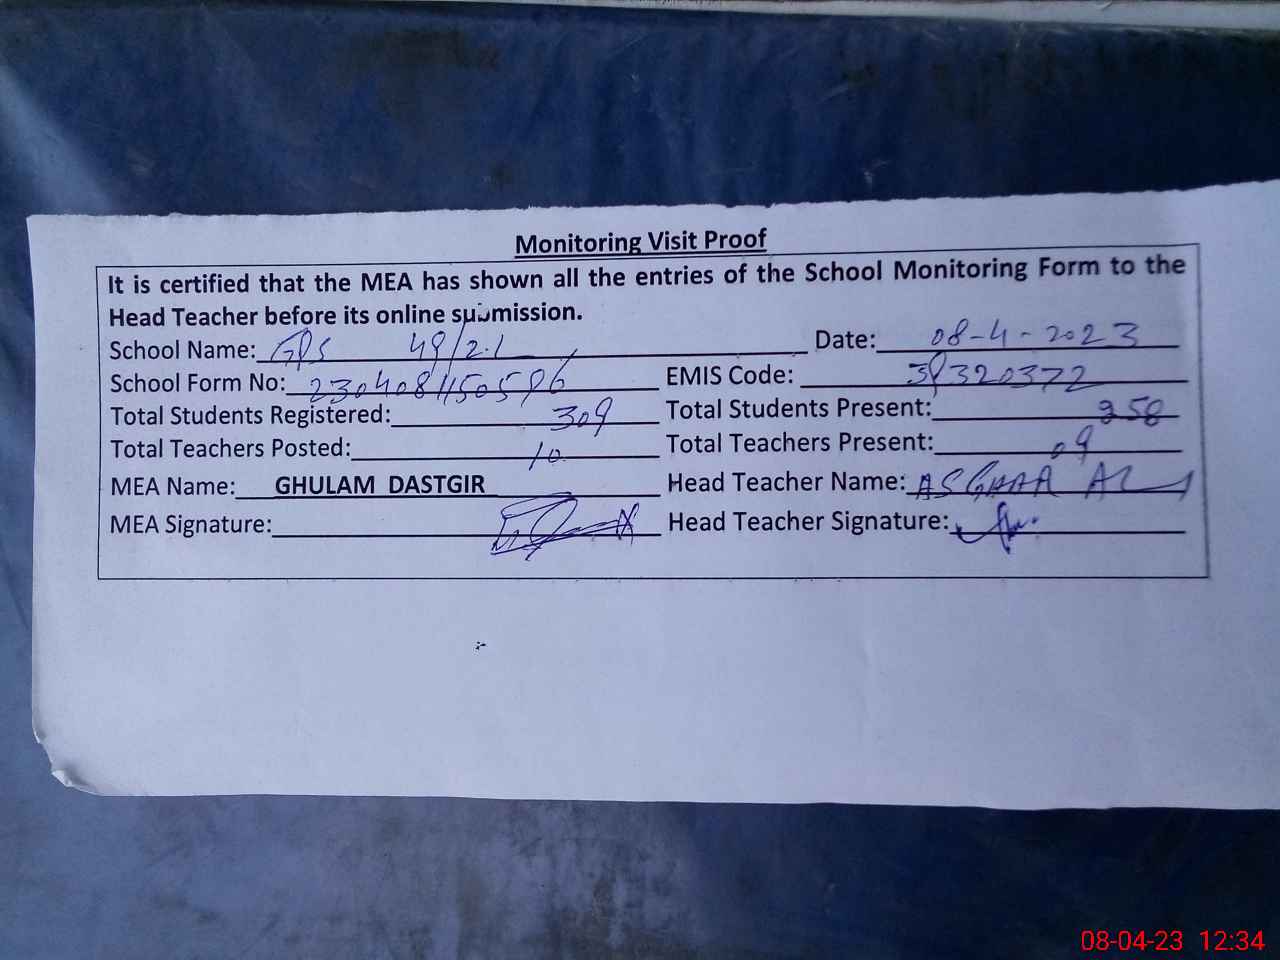 Monitoring Visit Proof
It is certified that the MEA has shown all the entries of the School Monitoring Form to the
Head Teacher before its online submission.
School Name: GPS 49/2.L Date: 08-4-2023
School Form No: EMIS Code:
Total Students Registered: 309 Total Students Present: 258
Total Teachers Posted: 10 Total Teachers Present: 09
MEA Name: GHULAM DASTGIR Head Teacher Name: ASGHAR ALI
MEA Signature: Head Teacher Signature:
08-04-23 12:34